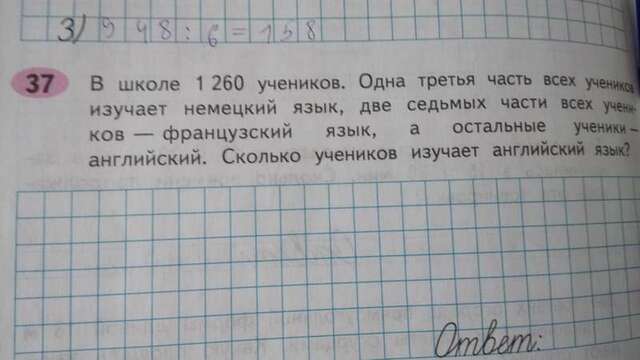 3) 948 : 6 = 158
37 В школе 1 260 учеников. Одна третья часть всех учеников
изучает немецкий язык, две седьмых части всех учени-
ков — французский язык, а остальные ученики –
английский. Сколько учеников изучает английский язык?
Ответ: